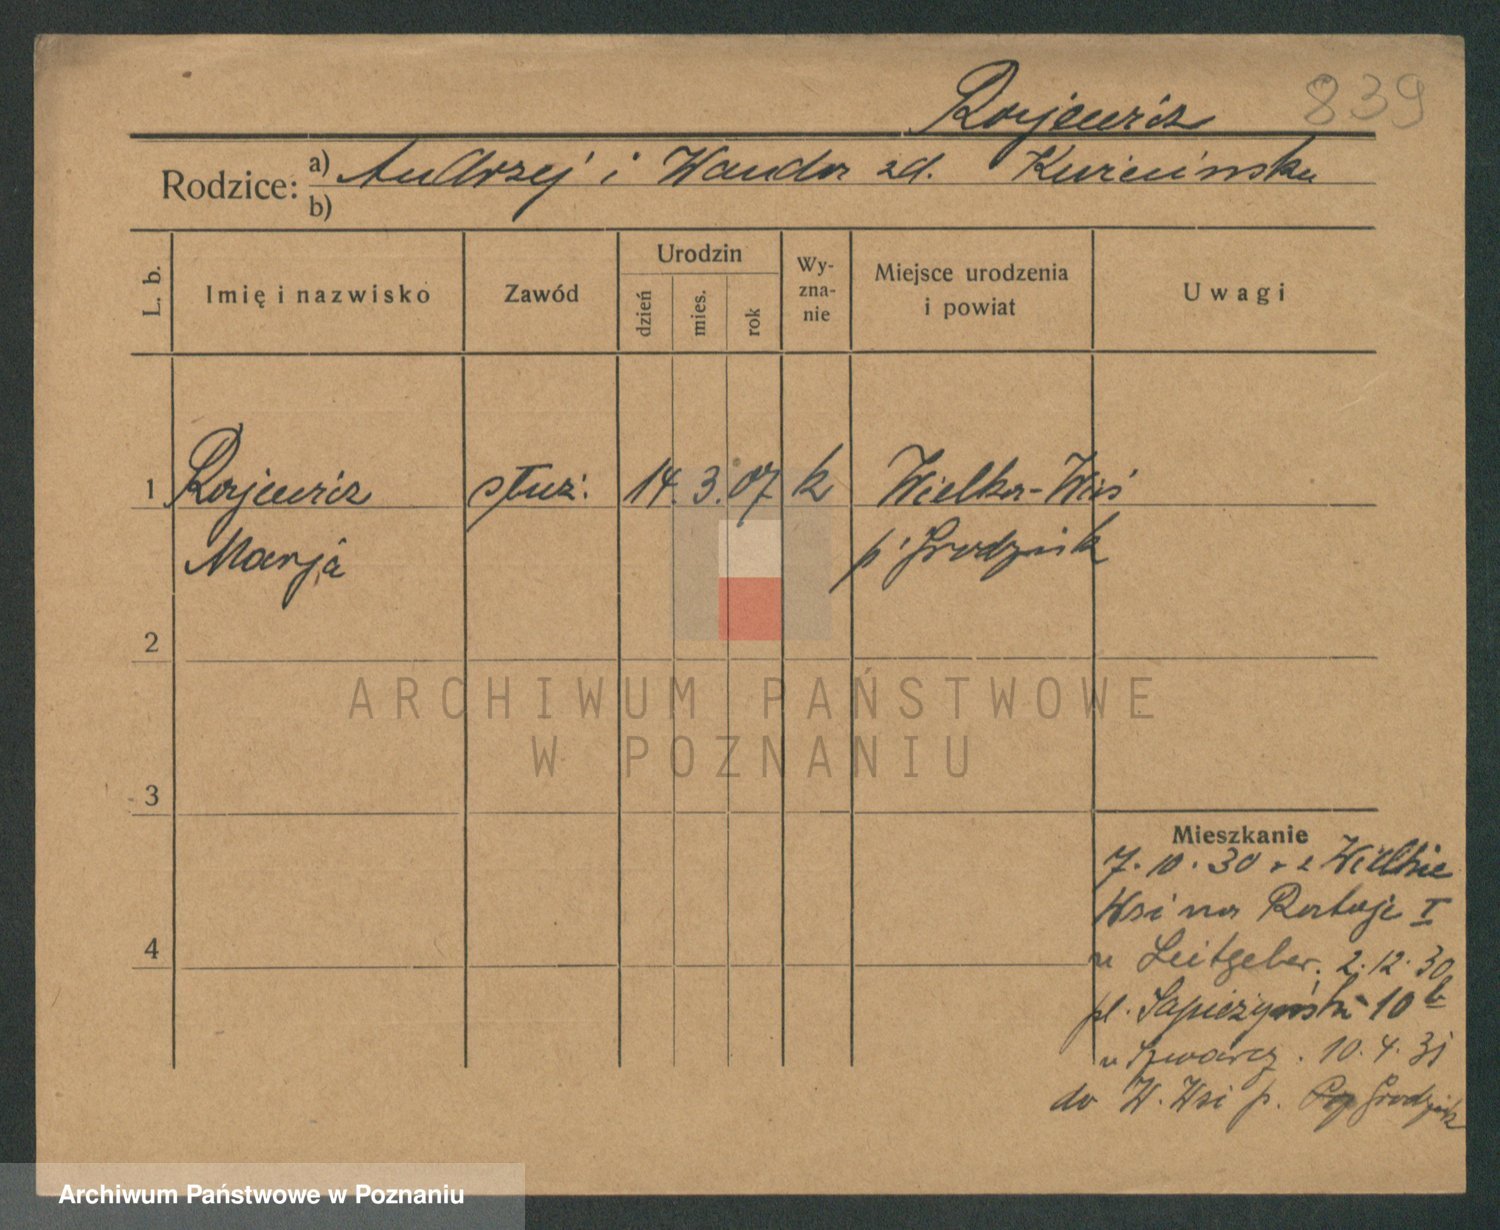 Rajewicz 839
Rodzice: a) Andrzej i Wanda zd.
b)
L. b. Imię i nazwisko Zawód Urodzin dzień mies. rok Wyznanie Miejsce urodzenia i powiat Uwagi
1 Rajewicz służ. 14. 3. 07 k Wielka-Wieś
Marja p. Grodzisk
2
ARCHIWUM PAŃSTWOWE
W POZNANIU
3
Mieszkanie
7. 10. 30 z Wielkie
Wsi na Rataje I
4
u Leitgeber. 2. 12. 30
pl. Sapieżyński 10 b
u Szwarcz. 10. 4. 31
do W. Wsi p. Grodzisk
Archiwum Państwowe w Poznaniu